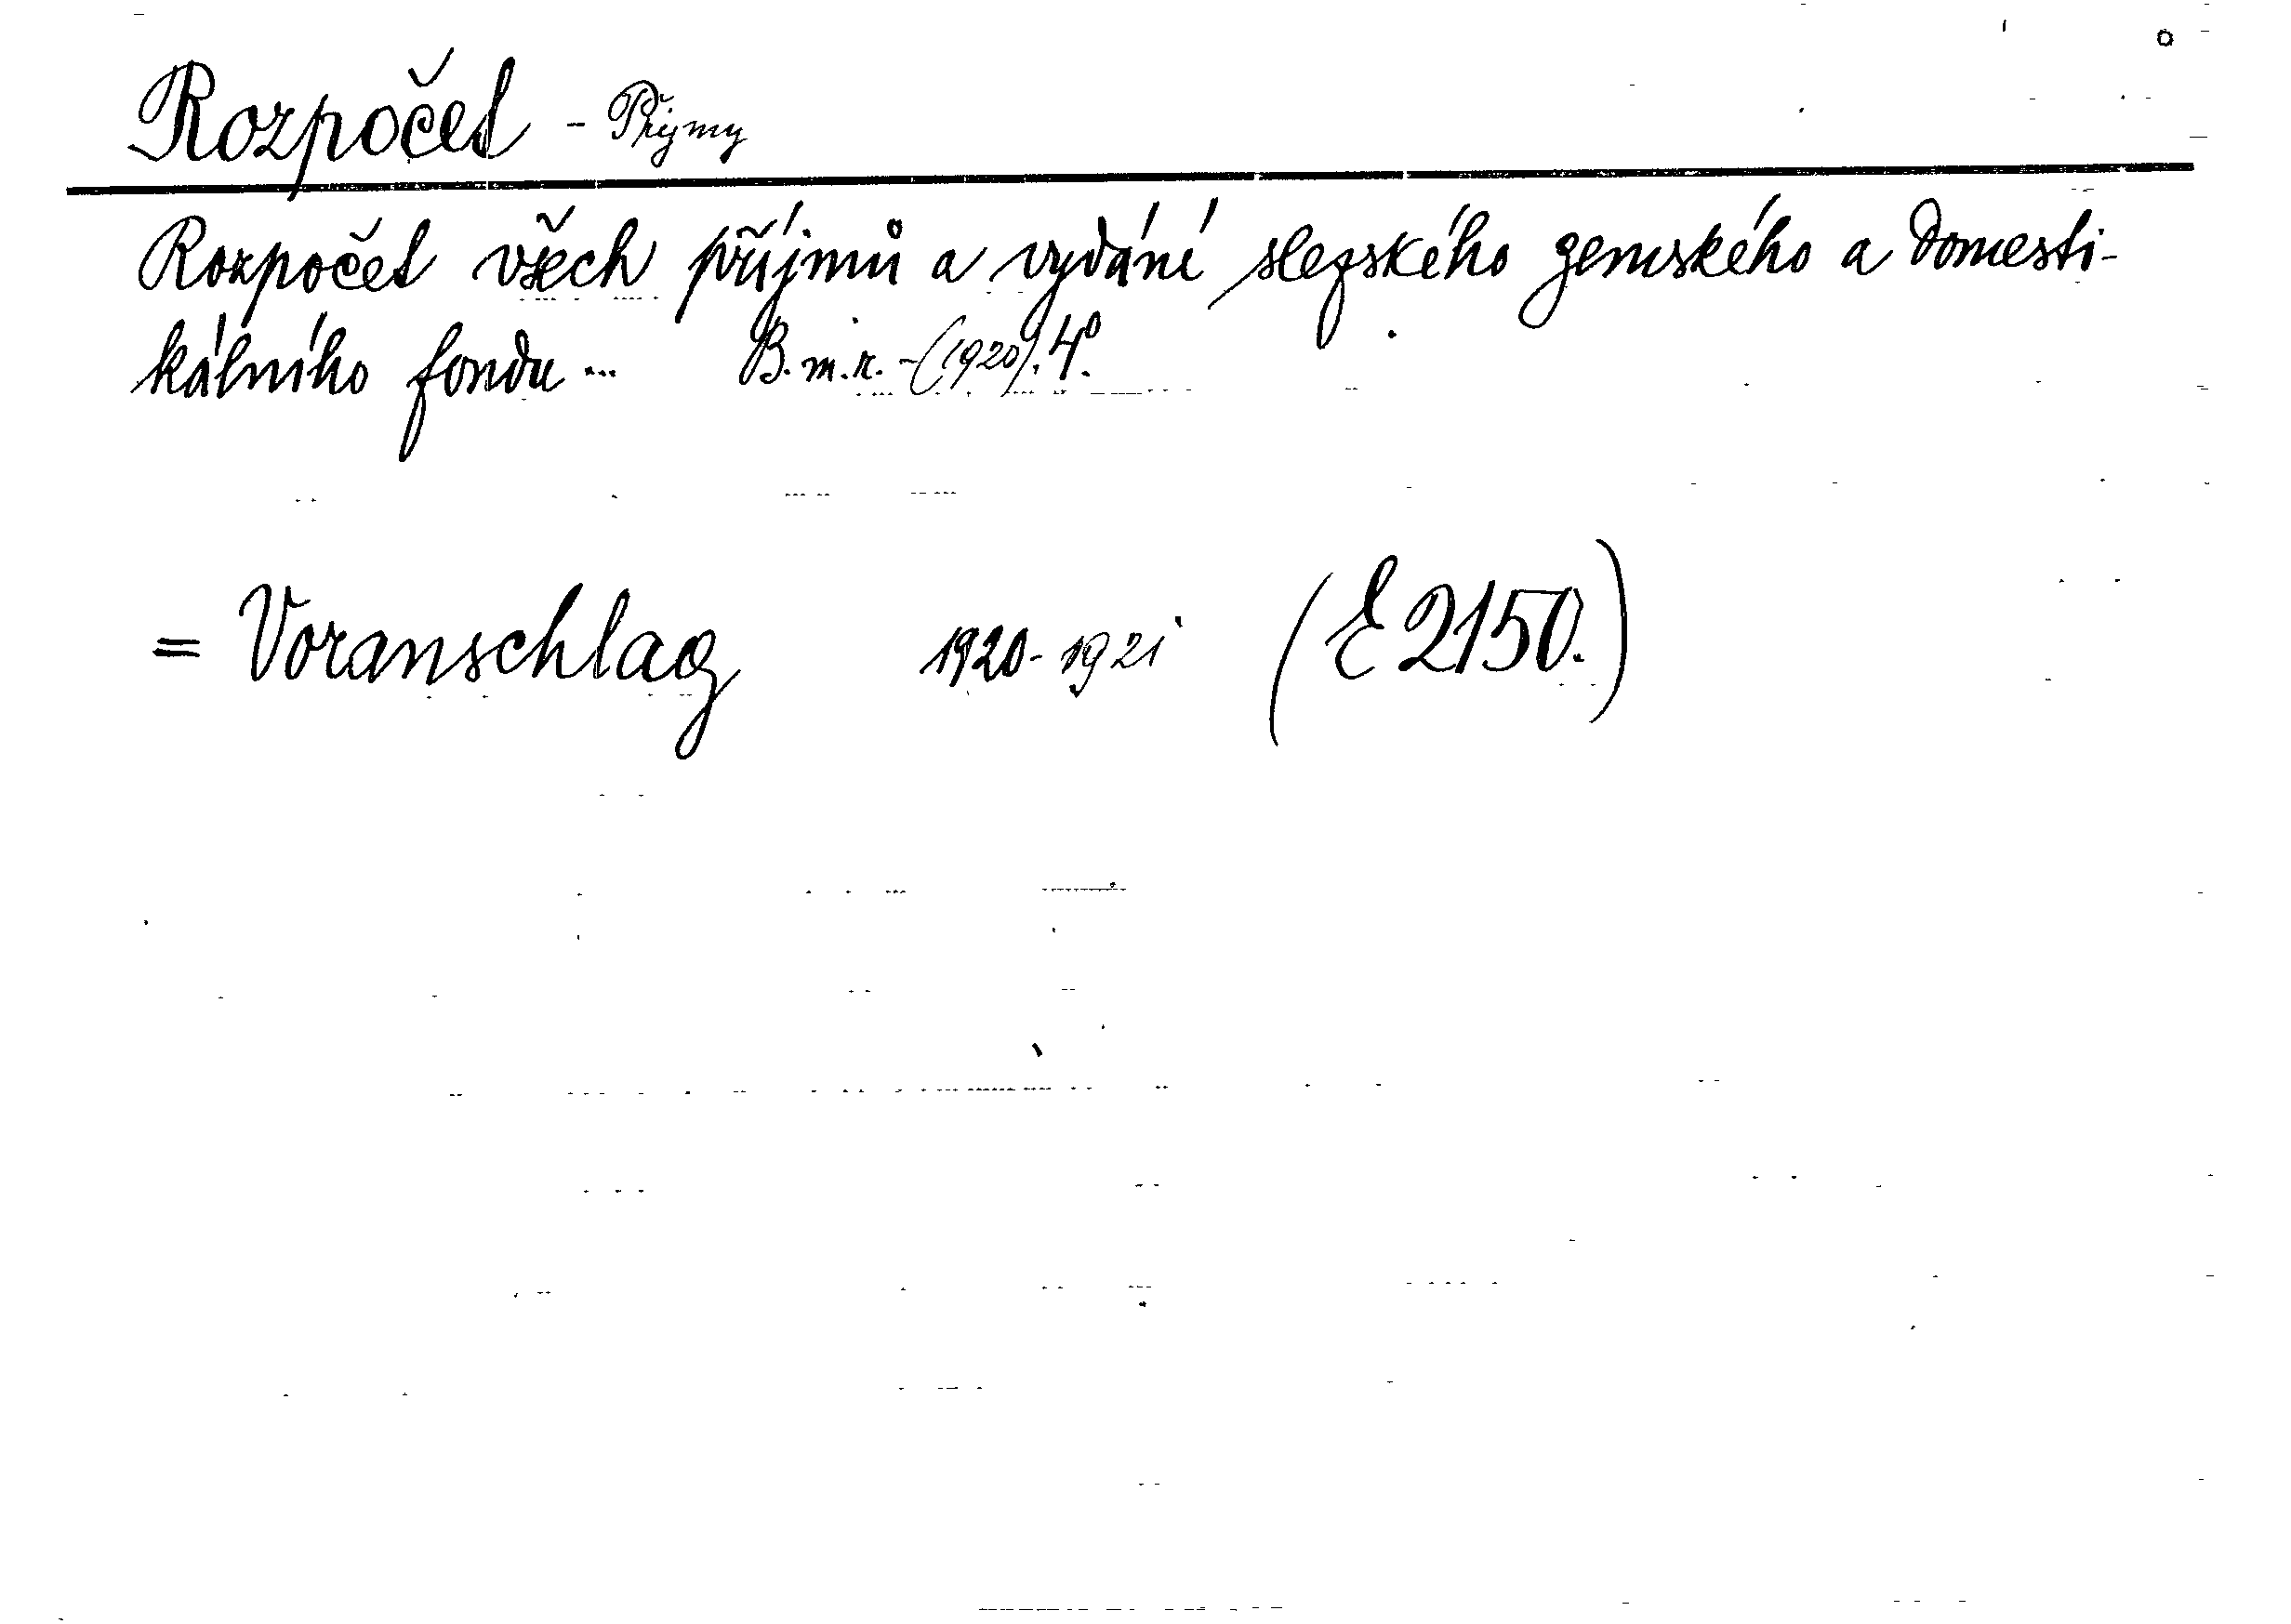 Rozpočet - Příjmy
Rozpočet všech příjmů a vydání slezského zemského a domesti-
kálního fondu ... B.m.r. - (1920). 4°.
= Voranschlag 1920-1921 (E 2150.)